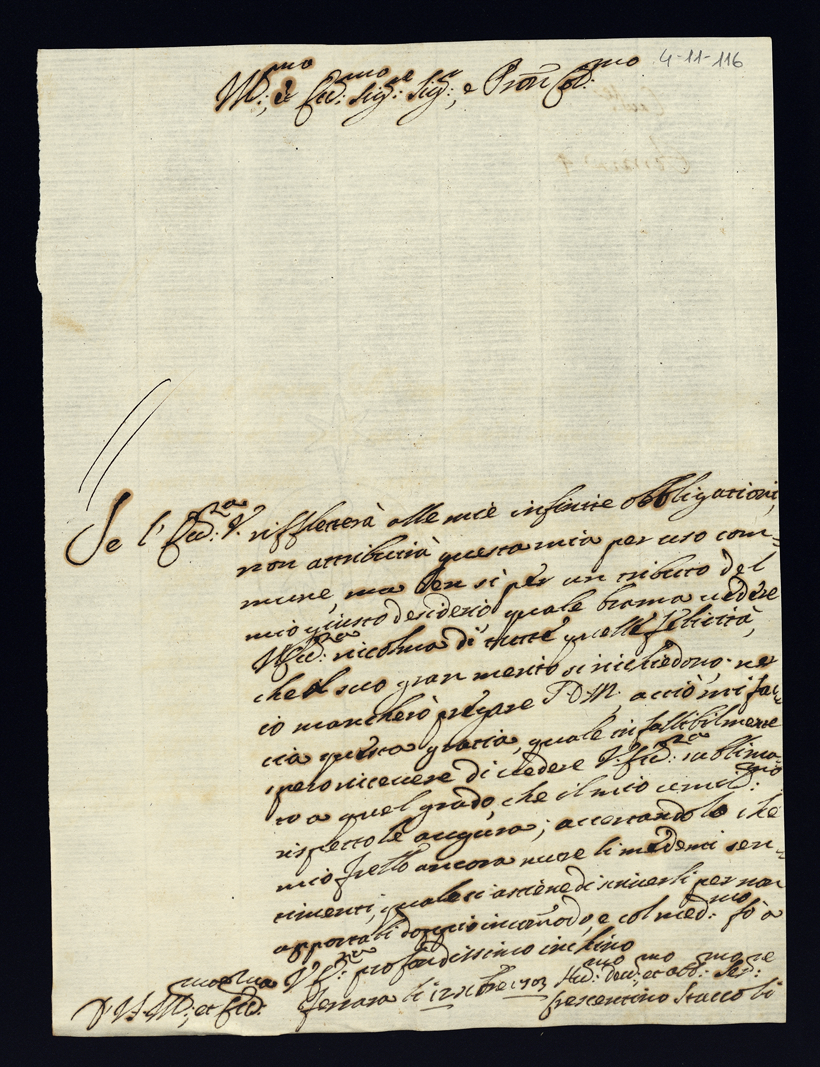 4-11-116
Ill:mo, et Ecc:mo Sig:re Sig:r, e Pron Col:mo
Se l' Ecc:za V. riffletterà alle mie infinite obbligationi,
non attribuirà questa mia per uso com=
mune, ma ben sì per un tributo del
mio giusto desiderio, quale brama vedere
V. Ecc:za ricolma di tutte quelle felicità,
che al suo gran merito si richiedono; ne
ciò mancherò pregare S. D. M. acciò mi fac=
cia questa gracia, quale infallibilmente
spero ricevere di vedere V. Ecc:za sublima=
to a quel grado, che il mio umil:mo
rispetto le augura; accertandola che
mio fratello ancora nutre li medemi sen=
timenti, quale si astiene di scriverli per non
apportarli doppio incomodo, e col med:mo fò a
V. E:za profondissimo inchino
Di V. S. Ill:ma, et Ecc:ma Ferrara li 12 Xbre 1703 Hu:mo dev:mo, et obb:mo Ser:re
Crescentino Staccoli